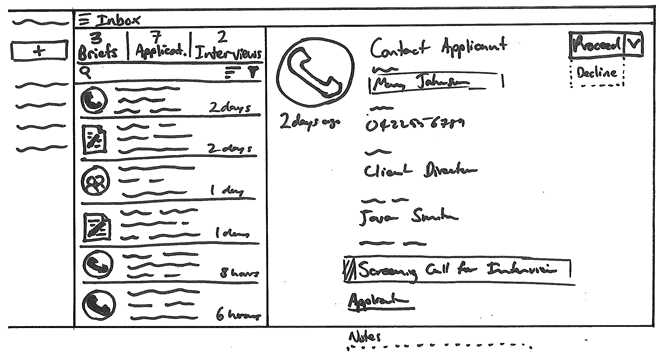 Inbox
3 7 2
Briefs Applicat. Interviews
2 days
2 days
1 day
1 day
8 hours
6 hours
2 days ago
Contact Applicant
Mary Johnson
0422556789
Client Director
Proceed
Decline
Screening Call for Interview
Notes